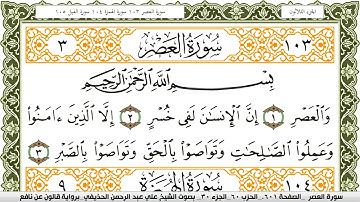 الجزء الثلاثون سورة العصر ١٠٣ سورة الهمزة ١٠٤ سورة الفيل ١٠٥
١٠٣ سُورَةُ الْعَصْرِ ٣
بِسْمِ اللَّهِ الرَّحْمَٰنِ الرَّحِيمِ
وَالْعَصْرِ ١ إِنَّ الْإِنسَٰنَ لَفِى خُسْرٍ ٢ إِلَّا الَّذِينَ ءَامَنُواْ
وَعَمِلُواْ الصَّٰلِحَٰتِ وَتَوَاصَوْاْ بِالْحَقِّ وَتَوَاصَوْاْ بِالصَّبْرِ ٣
١٠٤ سُورَةُ الْهُمَزَةِ ٩
سورة العصر _ الصفحة ٦٠١ _ الحزب ٦٠ _ الجزء ٣٠ _ بصوت الشيخ علي عبد الرحمن الحذيفي _ برواية قالون عن نافع